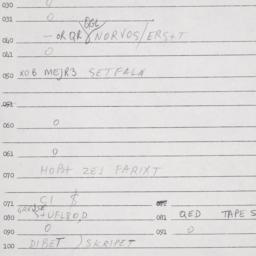 030 0
031 0
040 NORVOS/ERS+T
041 0
050 XOB MEJR3 SETFALN
051
060 0
061 0
070 ZEJ FARIXT
071 CI $
080 S+UFLBO,D 081 QED TAPE S
090 0 091 0
100 DIBET ) SKRIPET